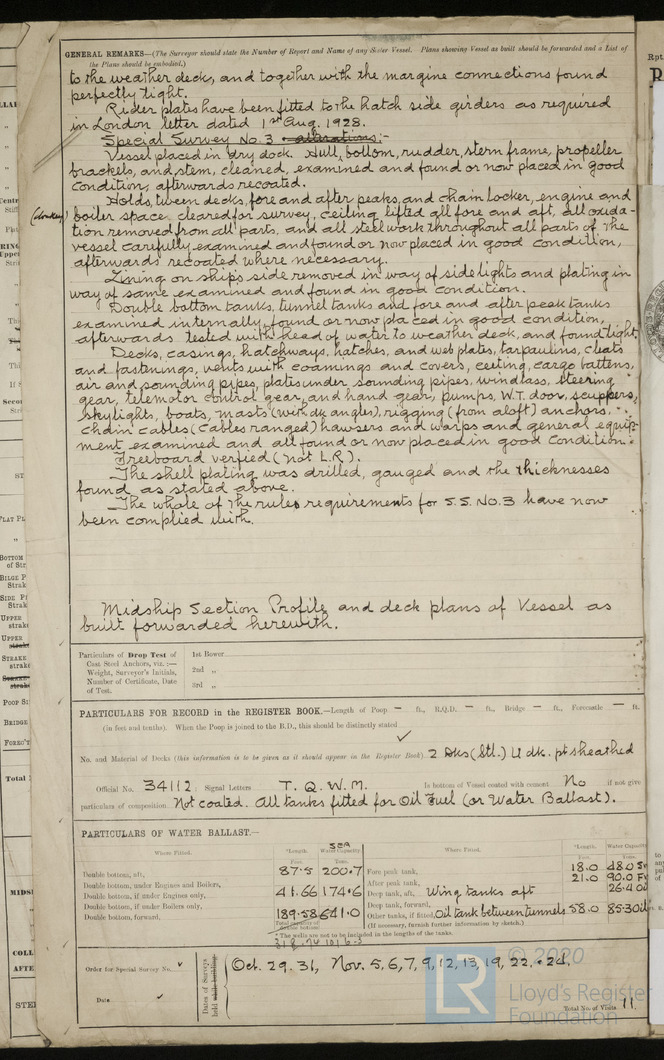 GENERAL REMARKS—(The Surveyor should state the Number of Report and Name of any Sister Vessel. Plans shewing Vessel as built should be forwarded and a List of
the Plans should be embodied.)
to the weather deck, and together with the margine connections found
perfectly tight.
Rider plates have been fitted to the hatch side girders as required
in London letter dated 1st Aug. 1928.
Special Survey No. 3 alterations:-
Vessel placed in dry dock. Hull, bottom, rudder, stern frame, propeller
brackets, and stem, cleaned, examined and found or now placed in good
condition, afterwards recoated.
Holds, tween decks, fore and after peaks, and chain locker, engine and
(donkey) boiler space cleared for survey, ceiling lifted all fore and aft, all oxida-
tion removed from all parts, and all steel work throughout all parts of the
vessel carefully examined and found or now placed in good condition,
afterwards recoated where necessary.
Lining on ship's side removed in way of side lights and plating in
way of same examined and found in good condition.
Double bottom tanks, tunnel tanks and fore and after peak tanks
examined internally, found or now placed in good condition,
afterwards tested with head of water to weather deck, and found tight.
Decks, casings, hatchways, hatches, and web plates, tarpaulins, cleats
and fastenings, vents with coamings and covers, ceiling, cargo battens,
air and sounding pipes, plates under sounding pipes, windlass, steering
gear, telemotor control gear, and hand gear, pumps, W.T. door, scuppers,
skylights, boats, masts (with dk angles), rigging (from aloft) anchors,
chain cables (cables ranged) hawsers and warps and general equip-
ment, examined and all found or now placed in good condition.
Freeboard verfied (not L.R).
The shell plating was drilled, gauged and the thicknesses
found as stated above.
The whole of the rules requirements for S.S. No. 3 have now
been complied with.
Midship Section Profile and deck plans of Vessel as
built forwarded herewith.
Particulars of Drop Test of
Cast Steel Anchors, viz. :—
Weight, Surveyor's Initials,
Number of Certificate, Date
of Test.
1st Bower
2nd „
3rd „
PARTICULARS FOR RECORD in the REGISTER BOOK.—Length of Poop — ft., R.Q.D. — ft., Bridge — ft., Forecastle — ft.
(in feet and tenths). When the Poop is joined to the B.D., this should be distinctly stated
No. and Material of Decks (this information is to be given as it should appear in the Register Book) 2 Dks (Stl.) U dk. pt sheathed
Official No. 34112. Signal Letters T. Q. W. M. Is bottom of Vessel coated with cement No if not give
particulars of composition Not coated. All tanks fitted for Oil Fuel (or Water Ballast).
PARTICULARS OF WATER BALLAST.—
SEA
Where Fitted. *Length. Water Capacity. Where Fitted. *Length. Water Capacity.
Feet. Tons. Feet. Tons.
Double bottom, aft, 87.5 200.7 Fore peak tank, 18.0
Double bottom, under Engines and Boilers, After peak tank, 21.0 90.0
Double bottom, if under Engines only, 41.66 174.6 Deep tank, aft, Wing tanks aft 26.4 Oil
Double bottom, if under Boilers only, Deep tank, forward,
Double bottom, forward, 189.58 641.0 Other tanks, if fitted, Oil tank between tunnels 58.0 85.3 Oil
Total capacity of double bottom (If necessary, furnish further information by sketch.)
* The wells are not to be included in the lengths of the tanks.
Order for Special Survey No.
Date
Dates of Surveys held while building
Oct. 29. 31, Nov. 5, 6, 7, 9, 12, 13, 19, 22, & 24.
Total No. of Visits 11.
© 2020
LR
Lloyd's Register
Foundation